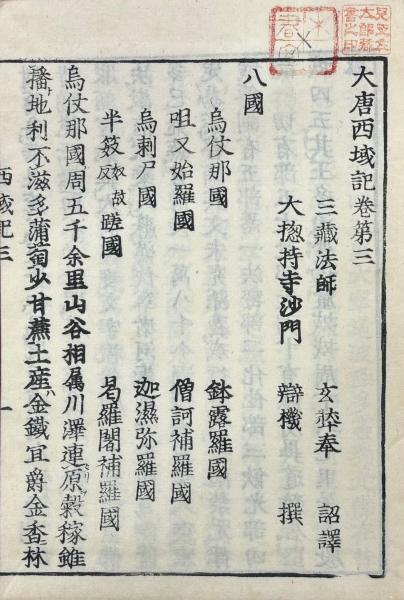 大唐西域記卷第三
三藏法師 玄奘奉 詔譯
大揔持寺沙門 辯機 撰
八國
烏仗那國 鉢露羅國
呾叉始羅國 僧訶補羅國
烏剌尸國 迦濕弥羅國
半笯奴故反蹉國 曷羅闍補羅國
烏仗那國周五千余里山谷相属川澤連原穀稼雖
播地利不滋多蒲萄少甘蔗土産金鐵宜爵金香林
西域記三 一